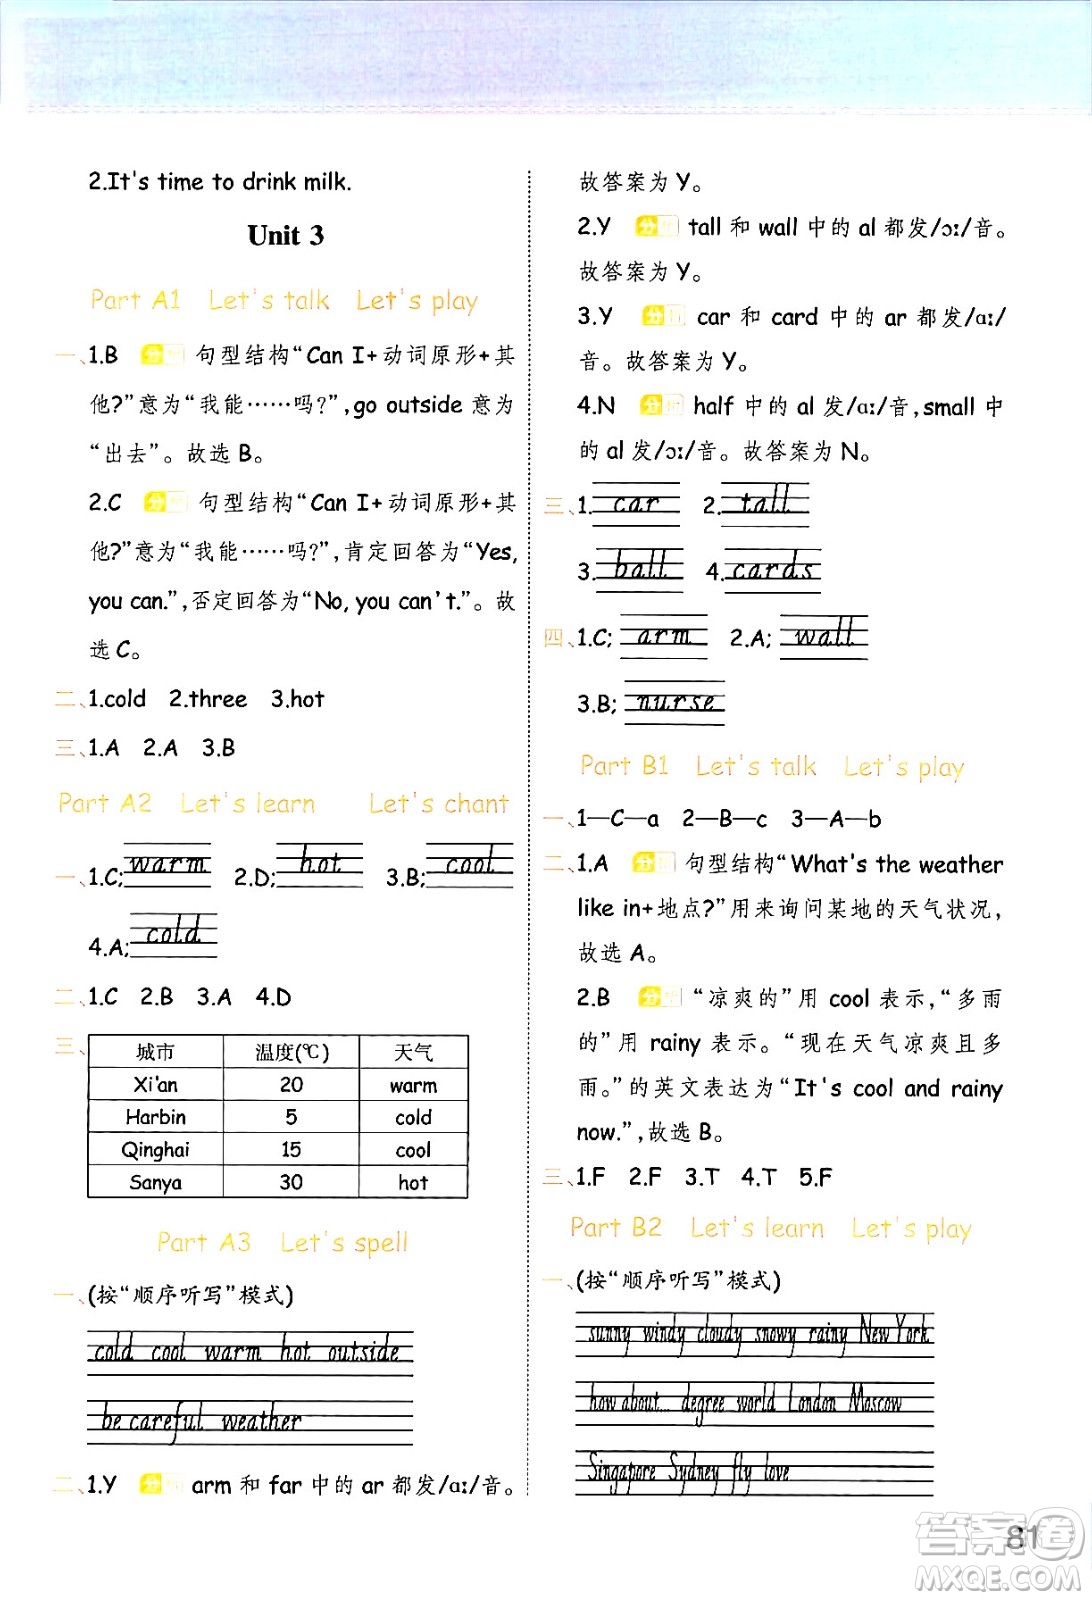 2.It's time to drink milk.
Unit 3
Part A1 Let's talk Let's play
一、1.B 分析 句型结构“Can I+动词原形+其
他?”意为“我能……吗?”,go outside 意为
“出去”。故选 B。
2.C 分析 句型结构“Can I+动词原形+其
他?”意为“我能……吗?”,肯定回答为“Yes,
you can.”,否定回答为“No, you can't.”。故
选 C。
二、1.cold 2.three 3.hot
三、1.A 2.A 3.B
Part A2 Let's learn Let's chant
一、1.C; warm 2.D; hot 3.B; cool
4.A; cold
二、1.C 2.B 3.A 4.D
三、
城市 温度(℃) 天气
Xi'an 20 warm
Harbin 5 cold
Qinghai 15 cool
Sanya 30 hot
Part A3 Let's spell
一、(按“顺序听写”模式)
cold cool warm hot outside
be careful weather
二、1.Y 分析 arm 和 far 中的 ar 都发/ɑː/音。
故答案为 Y。
2.Y 分析 tall 和 wall 中的 al 都发/ɔː/音。
故答案为 Y。
3.Y 分析 car 和 card 中的 ar 都发/ɑː/
音。故答案为 Y。
4.N 分析 half 中的 al 发/ɑː/音,small 中
的 al 发/ɔː/音。故答案为 N。
三、1. car 2. tall
3. ball 4. cards
四、1.C; arm 2.A; wall
3.B; nurse
Part B1 Let's talk Let's play
一、1—C—a 2—B—c 3—A—b
二、1.A 分析 句型结构“What's the weather
like in+地点?”用来询问某地的天气状况,
故选 A。
2.B 分析 “凉爽的”用 cool 表示,“多雨
的”用 rainy 表示。“现在天气凉爽且多
雨。”的英文表达为“It's cool and rainy
now.”,故选 B。
三、1.F 2.F 3.T 4.T 5.F
Part B2 Let's learn Let's play
一、(按“顺序听写”模式)
sunny windy cloudy snowy rainy New York
how about... degree world London Moscow
Singapore Sydney fly love
81
答案圈
MXQE.COM